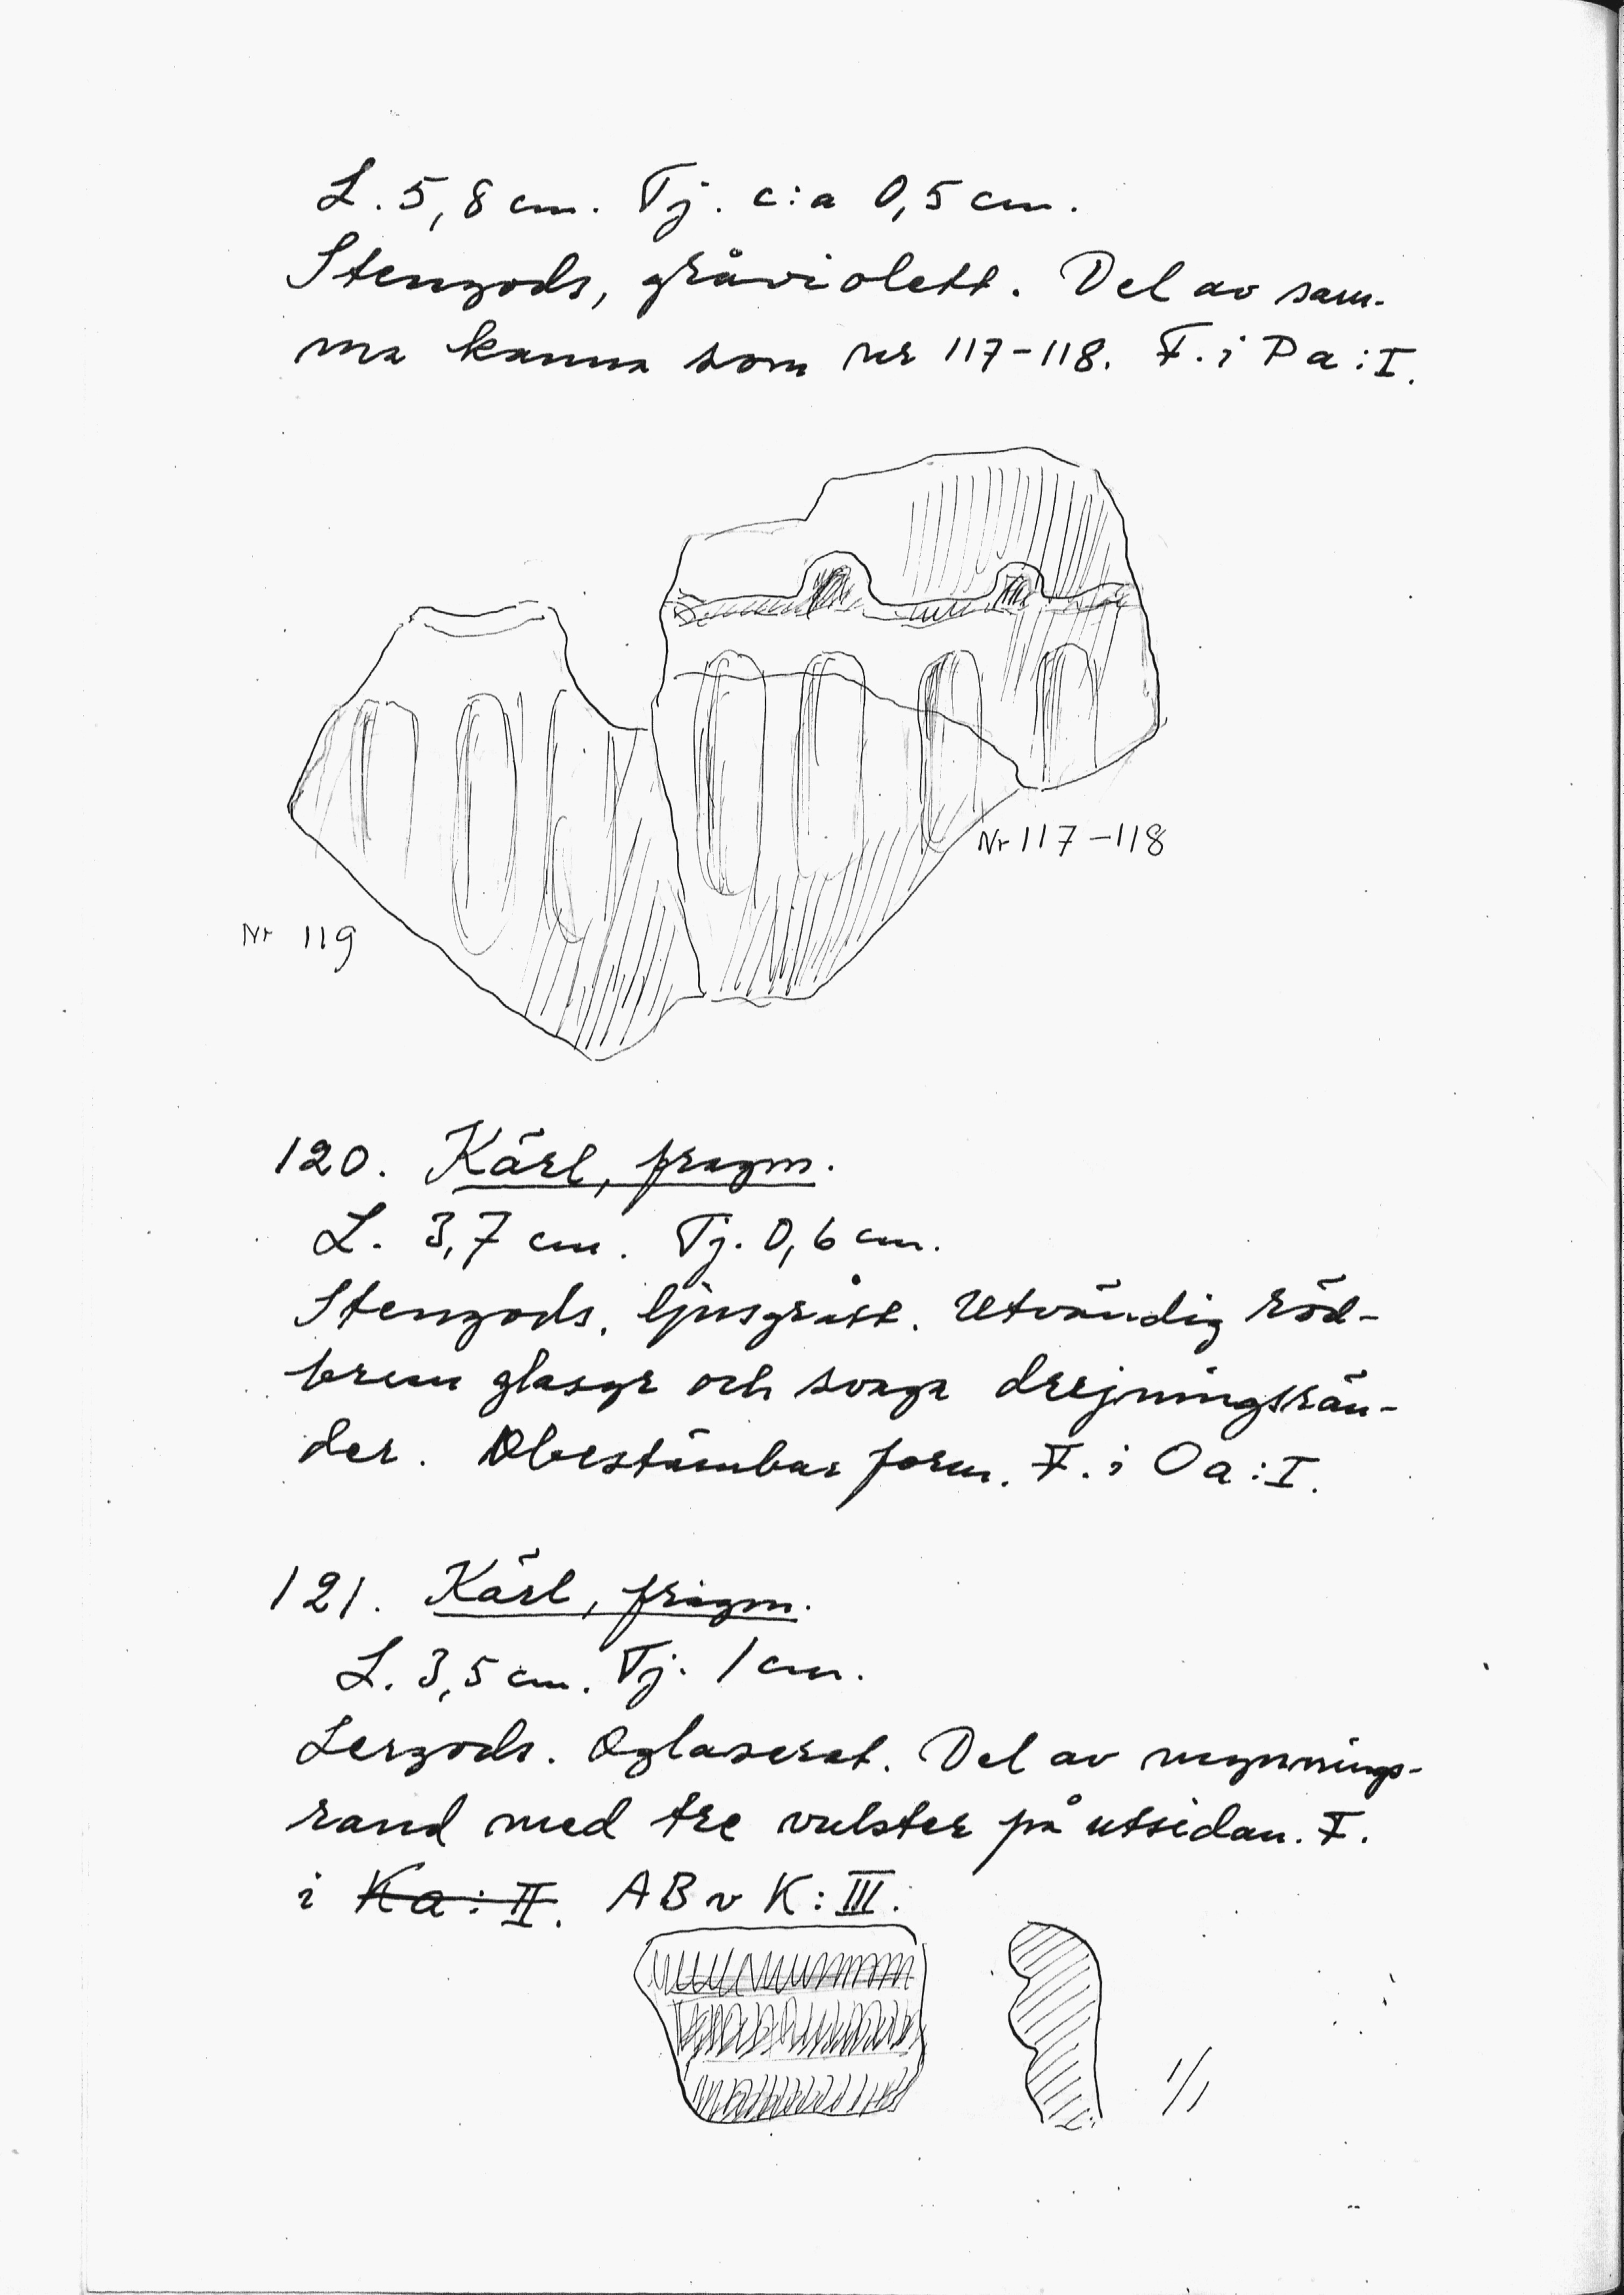 L. 5,8 cm. Tj. c:a 0,5 cm.
Stengods, gråviolett. Del av sam-
ma kanna som nr 117-118. F. i Pa:I.
Nr 117-118
Nr 119
120. Kärl, fragm.
L. 3,7 cm. Tj. 0,6 cm.
Stengods, ljusgrått. Utvändig röd-
brun glasyr och svaga drejningsrän-
der. Obestämbar form. F. i Oa:I.
121. Kärl, fragm.
L. 3,5 cm. Tj. 1 cm.
Lergods. Oglaserat. Del av mynnings-
rand med tre vulster på utsidan. F.
i Ka:II. ABv K:III.
1/1